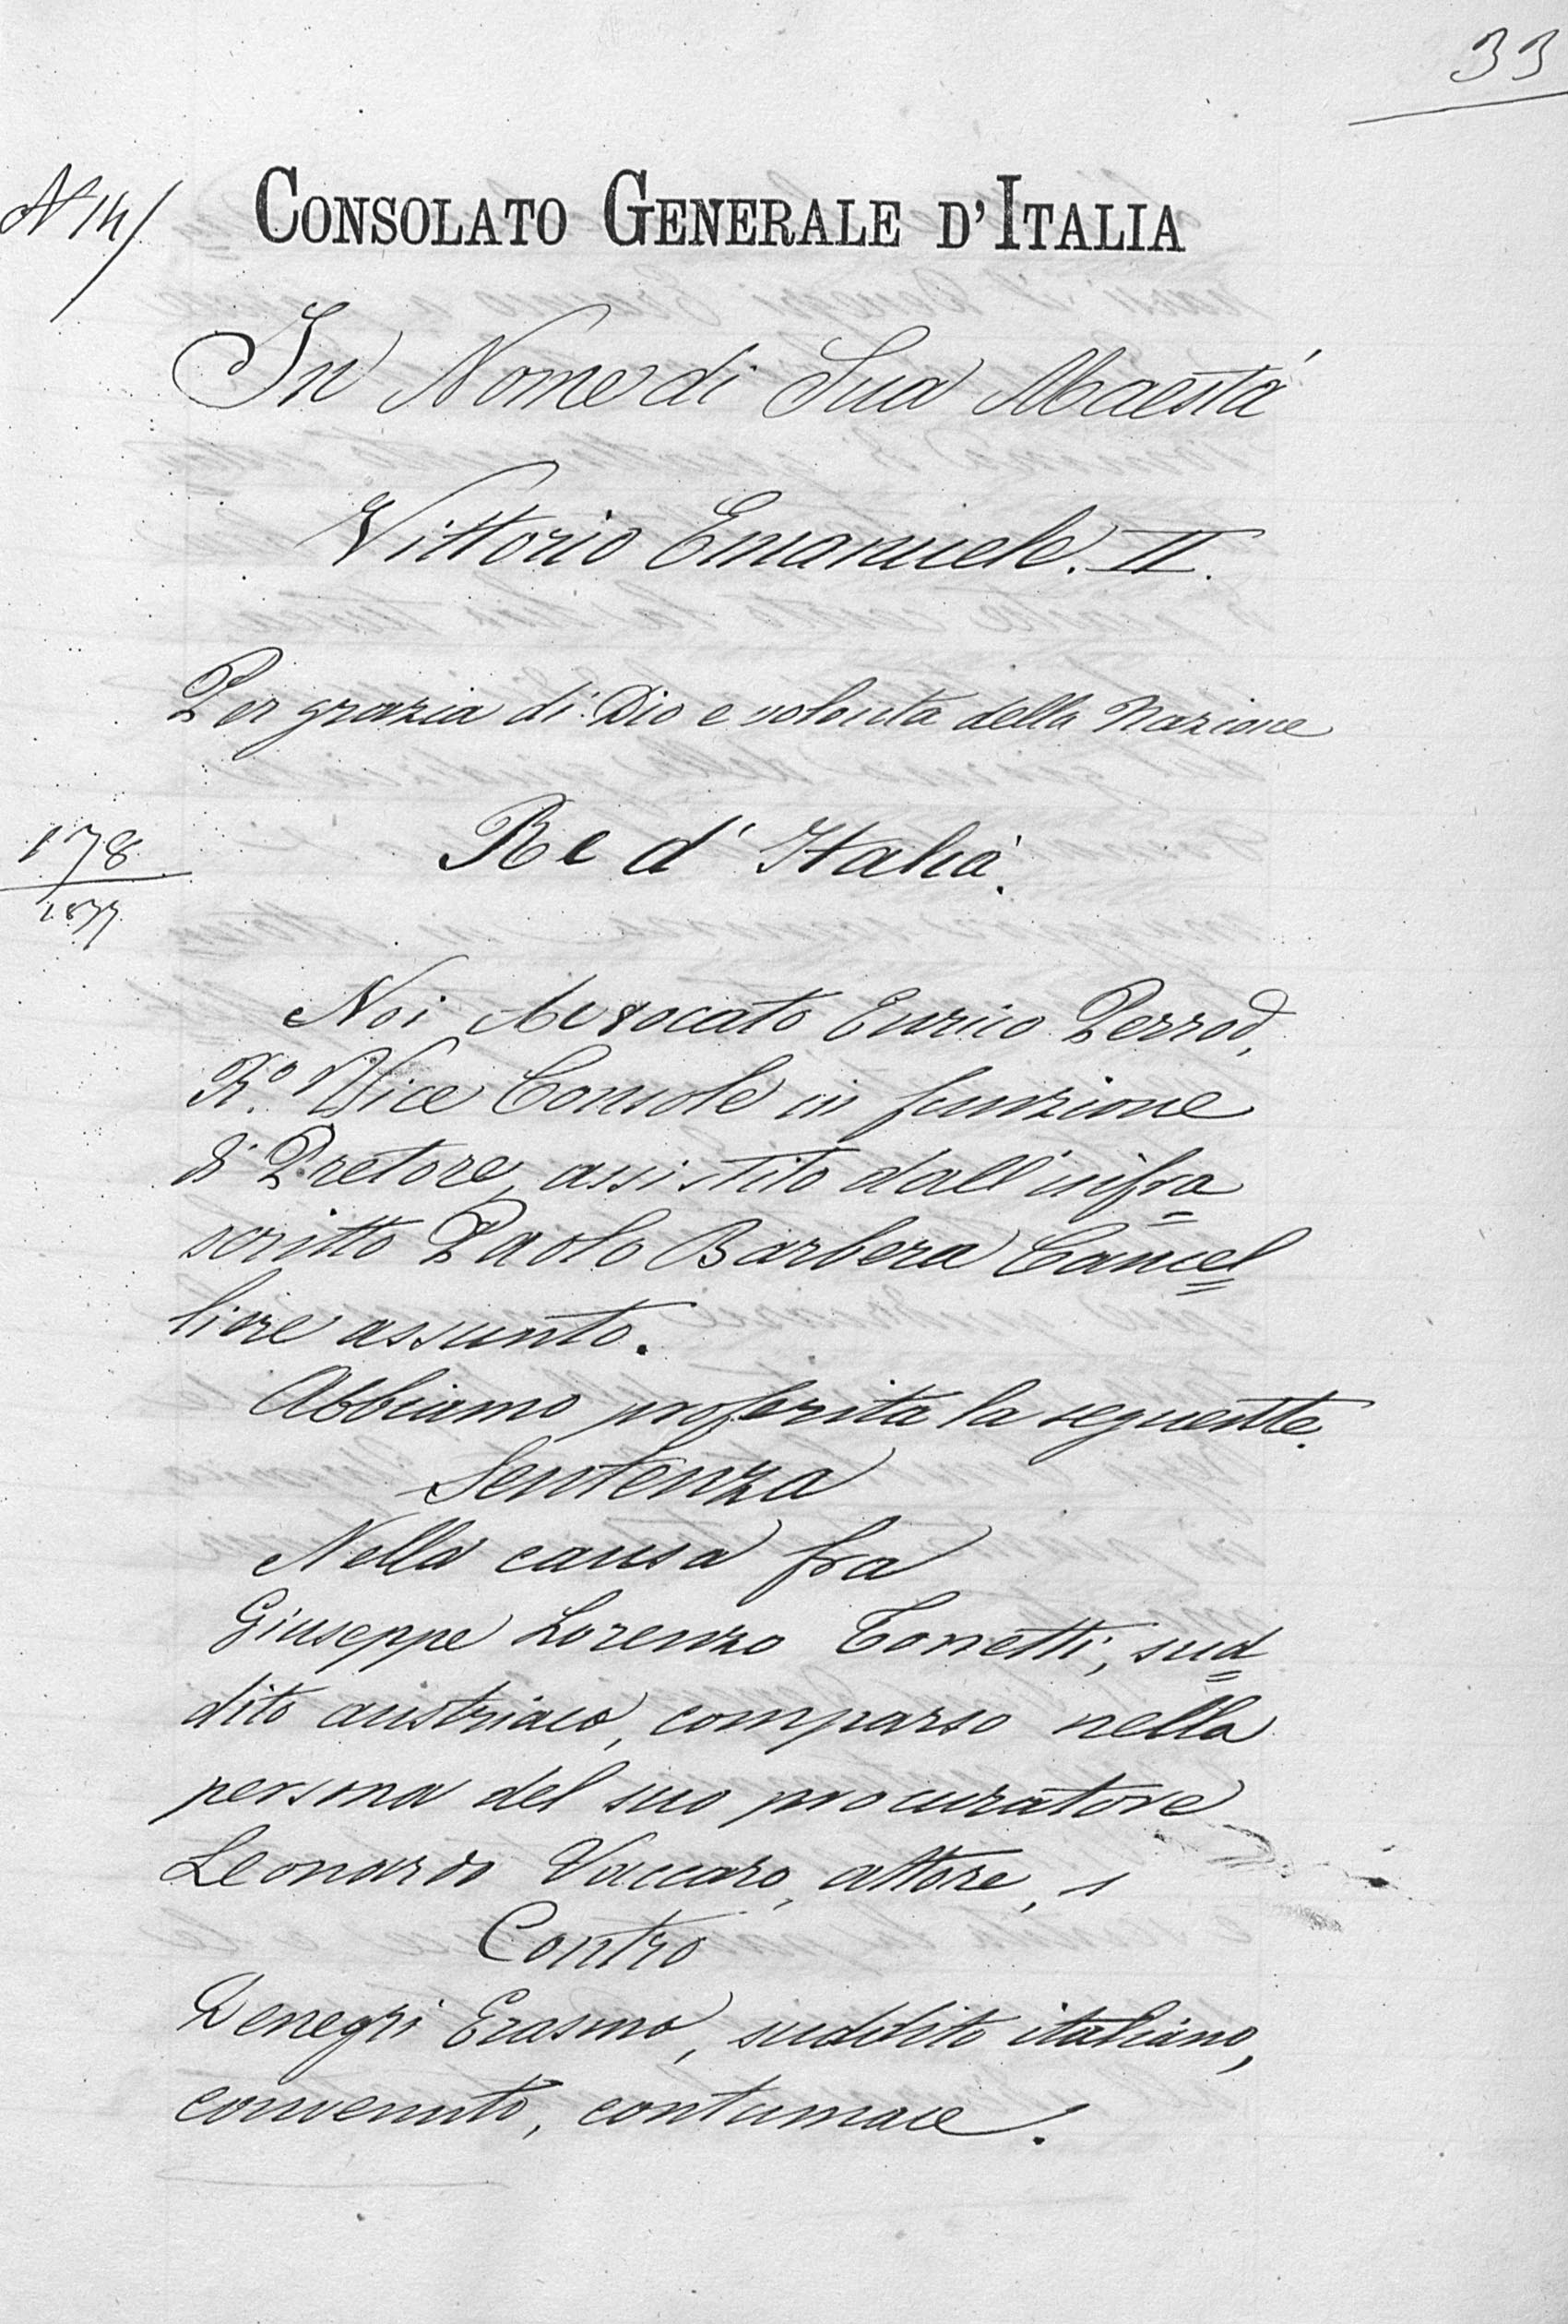 33
N 14/
CONSOLATO GENERALE D'ITALIA
In Nome di Sua Maestà
Vittorio Emanuele. II.
Per grazia di Dio e volontà della Nazione
178
1877
Re d'Italia.
Noi Avvocato Enrico Perrod,
R.º Vice Console in funzione
di Pretore, assistito dall'infra=
scritto Paolo Barbera Cancel=
liere assunto.
Abbiamo proferita la seguente
Sentenza
Nella causa fra
Giuseppe Lorenzo Tonetti, sud=
dito austriaco, comparso nella
persona del suo procuratore
Leonardo Vaccaro, attore,
Contro
Denegri Erasmo, suddito italiano,
convenuto, contumace.